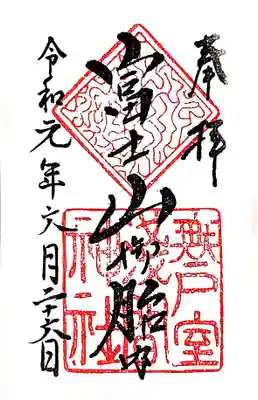 奉拝
富士山御胎内
令和元年六月二十六日
無戸室
神社